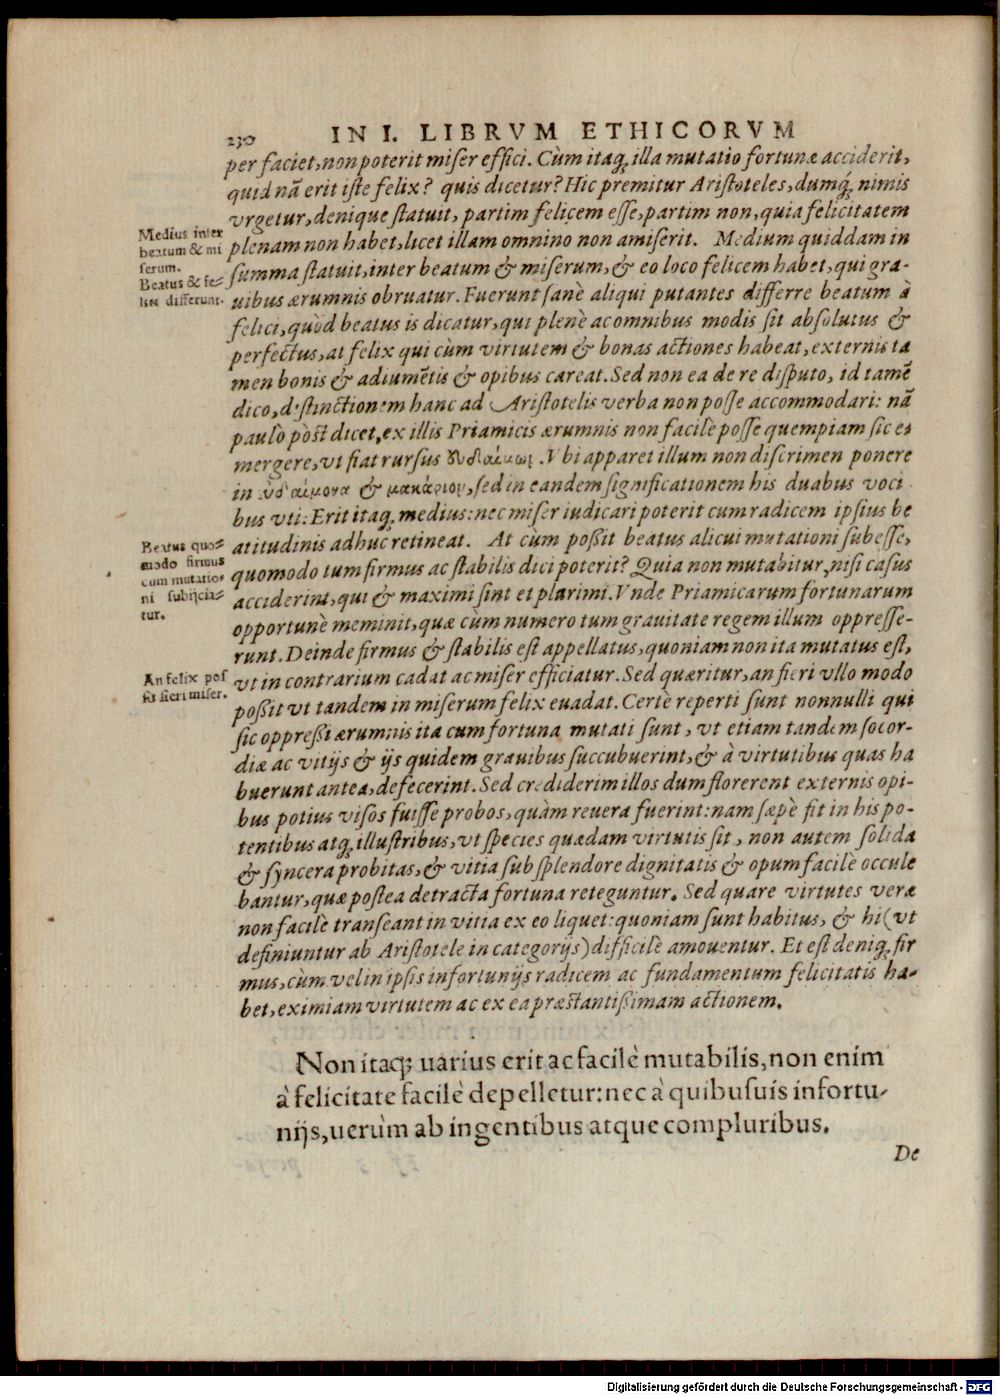 230 IN I. LIBRVM ETHICORVM
per faciet, non poterit miser effici. Cùm itaq; illa mutatio fortunæ acciderit,
quid nã erit iste felix? quis dicetur? Hic premitur Aristoteles, dumq́; nimis
vrgetur, denique statuit, partim felicem esse, partim non, quia felicitatem
plenam non habet, licet illam omnino non amiserit. Medium quiddam in
summa statuit, inter beatum & miserum, & eo loco felicem habet, qui gra-
uibus ærumnis obruatur. Fuerunt sanè aliqui putantes differre beatum à
felici, quòd beatus is dicatur, qui plenè ac omnibus modis sit absolutus &
perfectus, at felix qui cùm virtutem & bonas actiones habeat, externis ta
men bonis & adiumẽtis & opibus careat. Sed non ea de re disputo, id tamẽ
dico, distinctionem hanc ad Aristotelis verba non posse accommodari: nã
paulò pòst dicet, ex illis Priamicis ærumnis non facilè posse quempiam sic e-
mergere, vt fiat rursus . Vbi apparet illum non discrimen ponere
in & μακάριον, sed in eandem significationem his duabus voci
bus vti: Erit itaq; medius: nec miser iudicari poterit cum radicem ipsius be
atitudinis adhuc retineat. At cùm poßit beatus alicui mutationi subesse,
quomodo tum firmus ac stabilis dici poterit? Quia non mutabitur, nisi casus
acciderint, qui & maximi sint et plurimi. Vnde Priamicarum fortunarum
opportunè meminit, quæ cùm numero tum grauitate regem illum oppresse-
runt. Deinde firmus & stabilis est appellatus, quoniam non ita mutatus est,
vt in contrarium cadat ac miser efficiatur. Sed quæritur, an fieri vllo modo
poßit vt tandem in miserum felix euadat. Certè reperti sunt nonnulli qui
sic oppreßi ærumnis ita cum fortuna mutati sunt, vt etiam tandem socor-
diæ ac vitijs & ijs quidem grauibus succubuerint, & à virtutibus quas ha
buerunt antea, defecerint. Sed crediderim illos dum florerent externis opi-
bus potius visos fuisse probos, quàm reuera fuerint: nam sæpè fit in his po-
tentibus atq; illustribus, vt species quædam virtutis sit, non autem solida
& syncera probitas, & vitia sub splendore dignitatis & opum facilè occule
bantur, quæ postea detracta fortuna reteguntur. Sed quare virtutes veræ
non facilè transeant in vitia ex eo liquet: quoniam sunt habitus, & hi (vt
definiuntur ab Aristotele in categorijs) difficilè amouentur. Et est deniq; fir
mus, cùm vel in ipsis infortunijs radicem ac fundamentum felicitatis ha-
bet, eximiam virtutem ac ex ea præstantißimam actionem.
Medius inter
beatum & mi
serum.
Beatus & fe-
lix differunt.
Beatus quo-
modo firmus
cum mutatio-
ni subijcia-
tur.
An felix pos
sit fieri miser.
Non itaq; uarius erit ac facilè mutabilis, non enim
à felicitate facilè depelletur: nec à quibusuis infortu-
nijs, uerùm ab ingentibus atque compluribus.
De
Digitalisierung gefördert durch die Deutsche Forschungsgemeinschaft - DFG